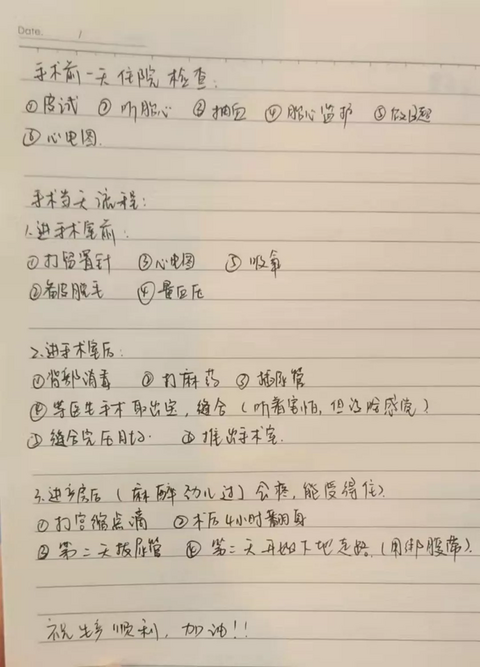 Date.    /
手术前一天住院检查:
①皮试 ②听胎心 ③抽血 ④胎心监护 ⑤做B超
⑥心电图
手术当天流程:
1.进手术室前:
①打留置针 ③心电图 ⑤吸氧
②备皮脱毛 ④量血压
2.进手术室后:
①背部消毒 ②打麻药 ③插尿管
④等医生手术取出宝,缝合(听着害怕,但没啥感觉)
⑤缝合完压肚子 ⑥推出手术室.
3.进病房后(麻醉劲儿过)会疼,能受得住)
①打宫缩点滴 ②术后4小时翻身
③第二天拔尿管 ④第二天开始下地走路(用绑腹带).
祝生产顺利,加油!!